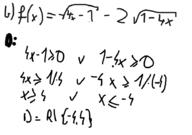 b) f(x) = √4x-1 - 2√1-4x
D:
4x-1≥0 v 1-4x≥0
4x≥1/4 v -4x≥1/(-4)
x≥4 v x≤-4
D=R\{-4,4}